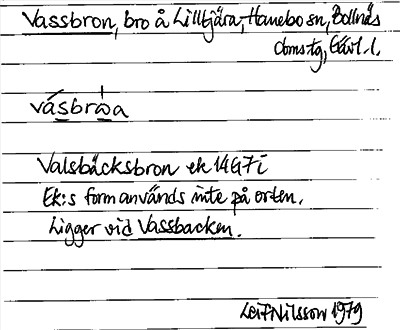 Vassbron, bro å Lilltjära, Hanebo sn, Bollnäs
domstg, Gävl. l.
vásbròa
Valsbäcksbron ek 14G7i
Ek:s form används inte på orten.
Ligger vid Vassbacken.
Leif Nilsson 1979